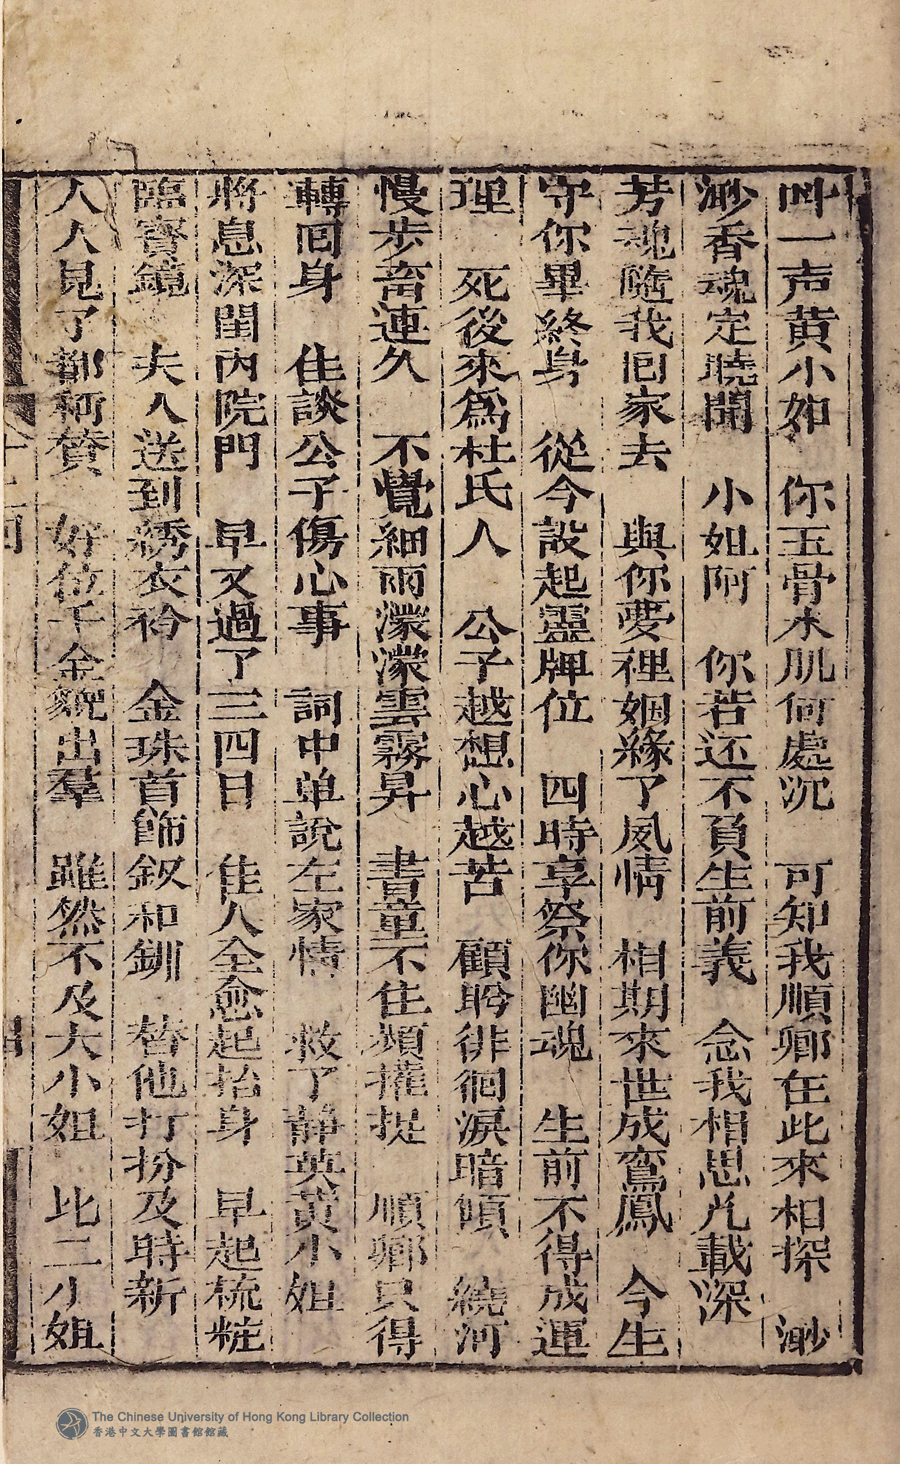 叫一声黄小姐　你玉骨氷肌何處沉　可知我順卿在此來相探　渺
渺香魂定曉聞　小姐阿　你若还不負生前義　念我相思凢載深
芳魂隨我囘家去　與你夢裡姻緣了夙情　相期來世成鸞鳳　今生
守你畢終身　從今設起靈牌位　四時享祭你幽魂　生前不得成連
理　死後來為杜氏人　公子越想心越苦　顧盼徘徊淚暗傾　繞河
慢步畱連久　不覺細雨濛濛雲霧昇　書童不住頻攉捉　順卿只得
轉囘身　住談公子傷心事　詞中单說左家情　救了静英黄小姐
將息深閨內院門　早又過了三四日　佳人全愈起抬身　早起梳粧
臨寳鏡　夫人送到綉衣衿　金珠首飾釵和釧　替他打扮及時新
人人見了都称賛　好位千金貌出羣　雖然不及大小姐　比二小姐
The Chinese University of Hong Kong Library Collection
香港中文大學圖書館館藏